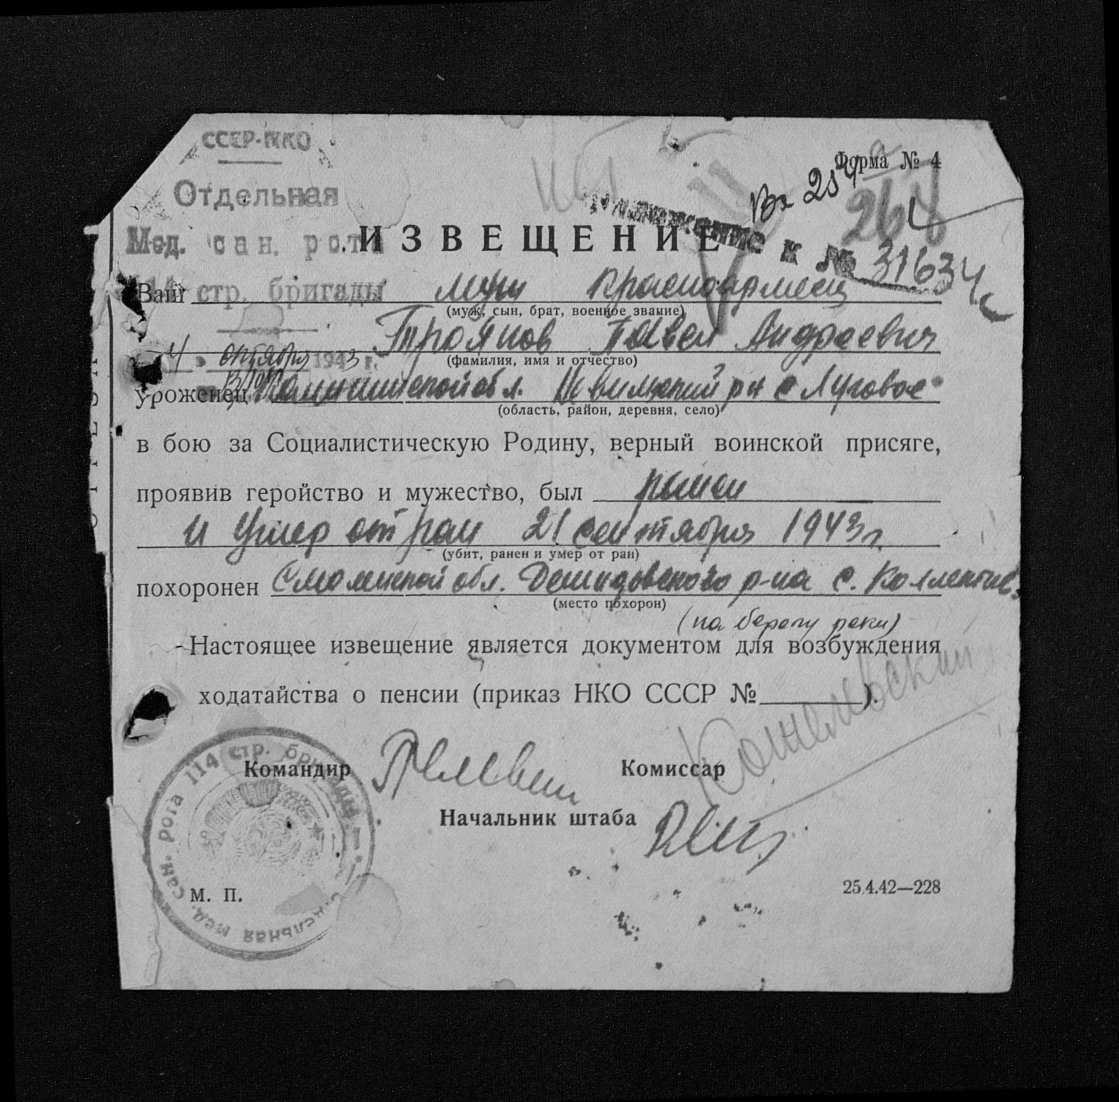 СССР-НКО
Форма № 4
Отдельная
Вх 254
264
Мед. сан. рота
ИЗВЕЩЕНИЕ
к № 31634
114 стр. бригады
Ваш муж Красноармеец
(муж, сын, брат, военное звание)
4 октября 1943 г.
Троянов Павел Андреевич
(фамилия, имя и отчество)
уроженец обл. р-н с Луговое
(область, район, деревня, село)
в бою за Социалистическую Родину, верный воинской присяге,
проявив геройство и мужество, был ранен
и умер от ран 21 сентября 1943 г.
(убит, ранен и умер от ран)
похоронен Смоленской обл. Демидовского р-на с.
(место похорон)
(на берегу реки)
Настоящее извещение является документом для возбуждения
ходатайства о пенсии (приказ НКО СССР № ).
Командир
Комиссар
Начальник штаба
Отдельная мед. сан. рота 114 стр. бригады
М. П.
25.4.42—228